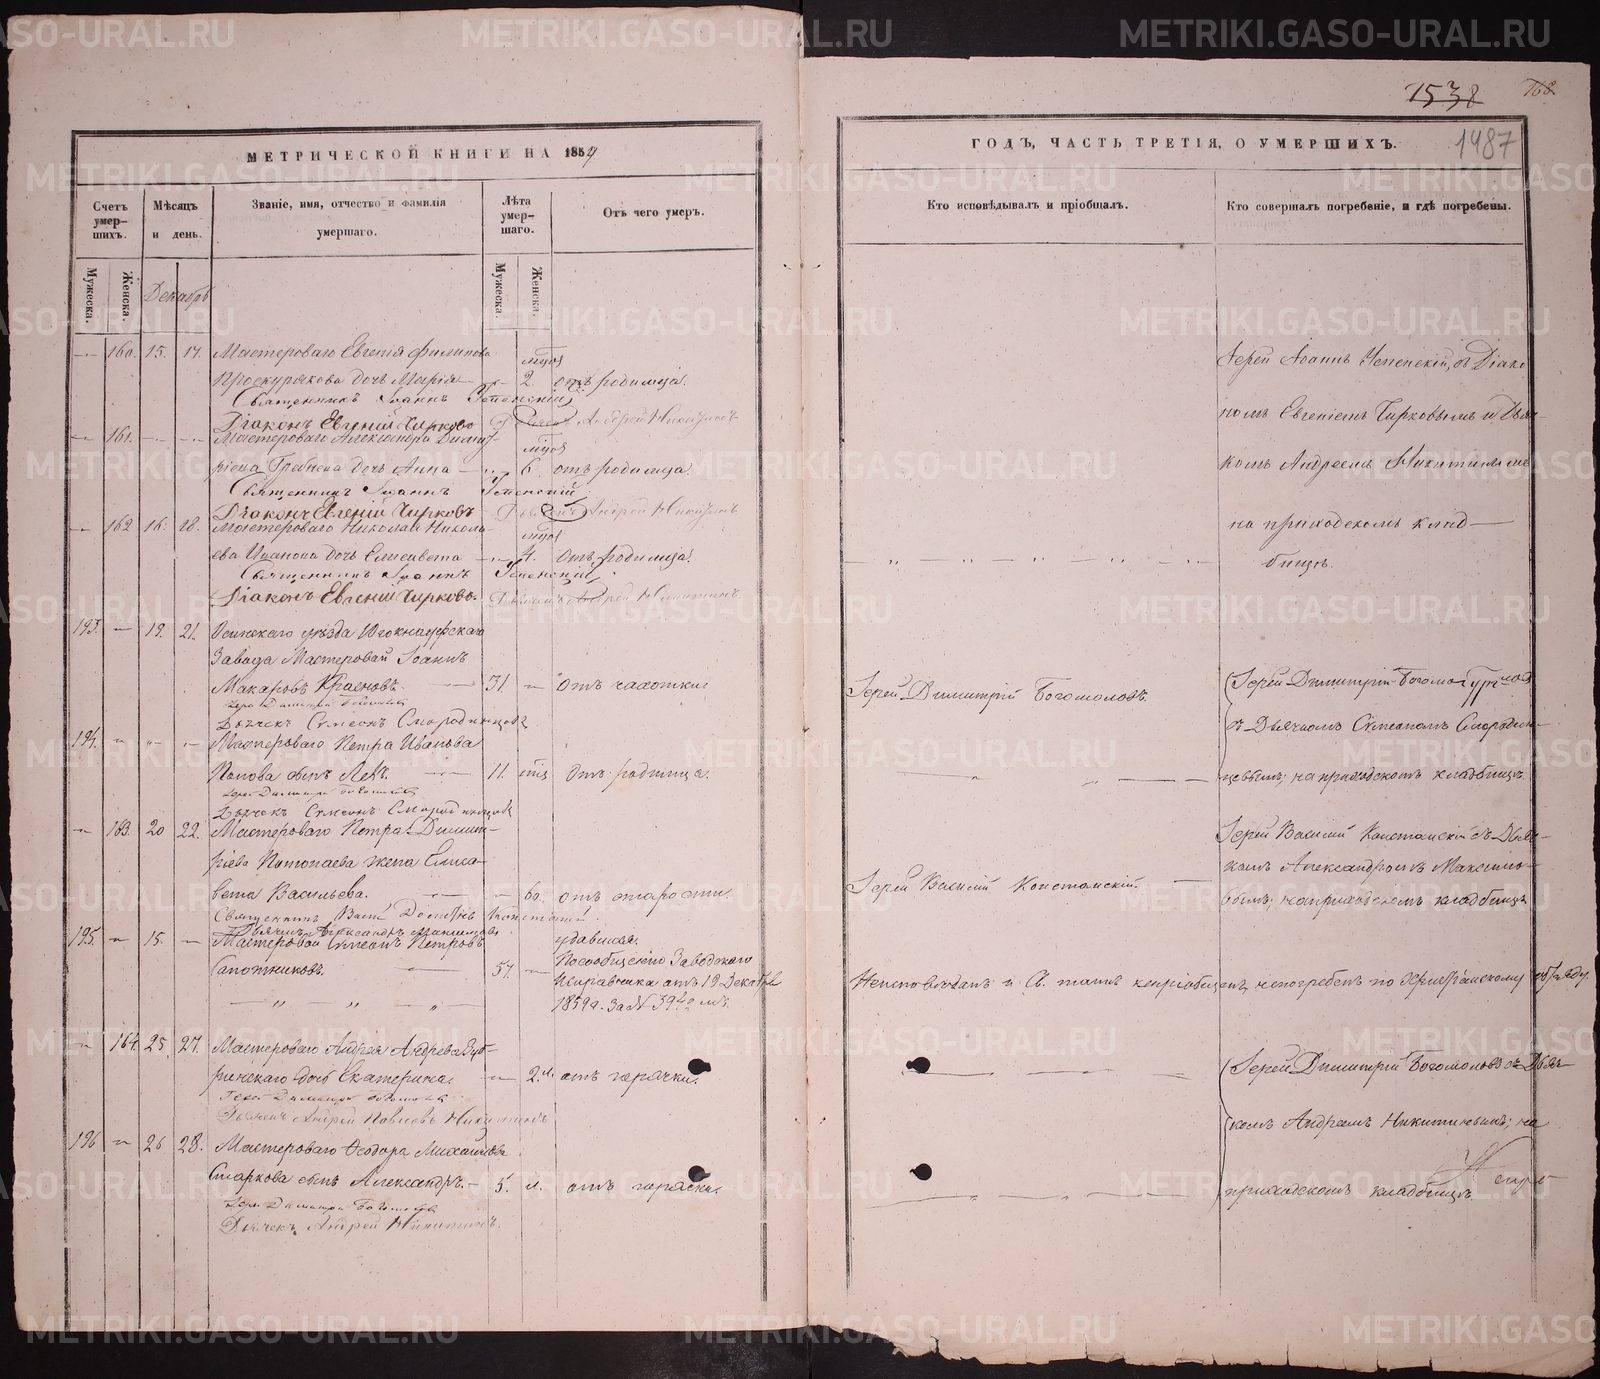 МЕТРИЧЕСКОЙ КНИГИ НА 1859
Счетъ умер-шихъ.
Мѣсяцъ и день.
Званіе, имя, отчество и фамилія умершаго.
Лѣта умер-шаго.
Отъ чего умеръ.
Мужеска.
Женска.
Декабрь
Мужеска.
Женска.
160. 15. 17. Мастероваго Евгенія Филипова мцов
Проскурякова дочь Марія 2 отъ родимца.
Священникъ Іоаннъ Успенскій
Діаконъ Евгеній Чирковъ Андрей Никитинъ
161. Мастероваго Александра Димит- мцов
ріева Гребнева дочь Анна 6 отъ родимца.
Священникъ Іоаннъ Успенскій
Діаконъ Евгеній Чирковъ Дьячекъ Андрей Никитинъ
162 16. 18. Мастероваго Николая Никола- мцов
ева Иванова дочь Елисавета 4. отъ родимца.
Священникъ Іоаннъ Успенскій
Діаконъ Евгеній Чирковъ. Дьячекъ Андрей Никитинъ.
193. 19. 21. Осинскаго уѣзда Югокнауфскаго
Завода Мастеровой Іоаннъ
Макаровъ Красновъ. 31. отъ чахотки
Іерей Димитрій Богомоловъ
Дьячекъ Симеонъ Смородинцовъ
194. Мастероваго Петра Иванова
Попова сынъ Левъ. 11. мцъ отъ родимца.
Іерей Димитрій Богомоловъ
Дьячекъ Симеонъ Смородинцовъ
163. 20 22. Мастероваго Петра Димит-
ріева Потопаева жена Елиса-
вета Васильева. 60. отъ старости.
Священникъ Василій Константинъ
Дьячекъ Александръ Максимовъ
195. 15. Мастеровой Симеонъ Петровъ удавился.
Сапожниковъ. 57. По сообщенію Заводскаго
Исправника отъ 19 Декабря
1859 г. за №
164. 25 27. Мастероваго Андрея Андреева
дочь Екатерина. 2. м. отъ горячки.
Іерей Димитрій Богомоловъ
Дьячекъ Андрей Павловъ Никитинъ
196 26 28. Мастероваго Ѳеодора Михайлова
Старкова сынъ Александръ. 5. м. отъ горячки.
Іерей Димитрій Богомоловъ
Дьячекъ Андрей Никитинъ.
1538 168
ГОДЪ, ЧАСТЬ ТРЕТІЯ, О УМЕРШИХЪ. 1487
Кто исповѣдывалъ и пріобщалъ.
Кто совершалъ погребеніе, и гдѣ погребены.
Іерей Іоаннъ Успенскій, съ Діако
номъ Евгеніемъ Чирковымъ и Дьяч-
комъ Андреемъ Никитинымъ
на приходскомъ клад-
бищѣ.
Іерей Димитрій Богомоловъ.
Іерей Димитрій Богомоловъ
съ Дьячкомъ Симеономъ Смородин-
цевымъ; на приходскомъ кладбищѣ.
Іерей Василій
Іерей Василій съ Дьяч-
комъ Александромъ Максимо-
вымъ; на приходскомъ кладбищѣ
Неисповѣданъ и Св. таинъ непріобщенъ, непогребенъ по Христіанскому обряду.
Іерей Димитрій Богомоловъ съ Дьяч-
комъ Андреемъ Никитинымъ; на
приходскомъ кладбищѣ.
METRIKI.GASO-URAL.RU